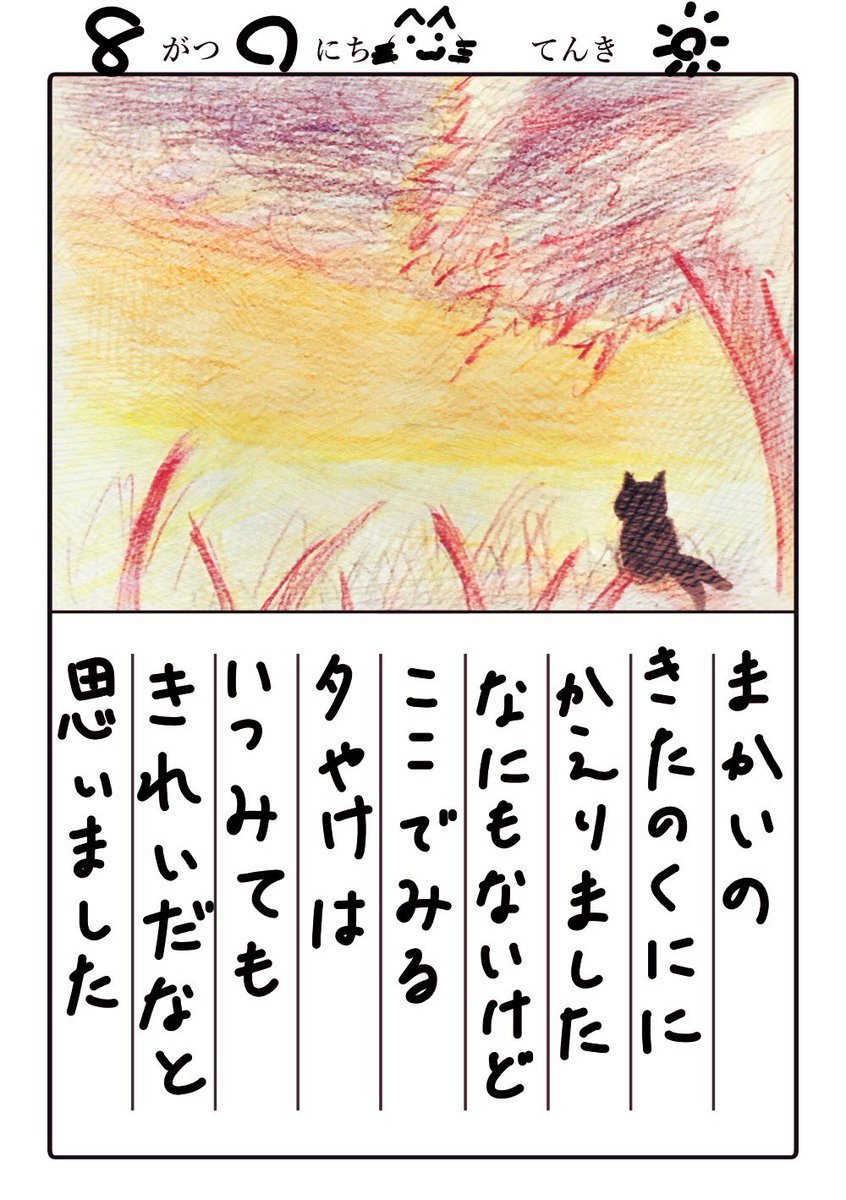 8がつ にち てんき
まかいの
きたのくにに
かえりました
なにもないけど
ここでみる
夕やけは
いつみても
きれいだなと
思いました